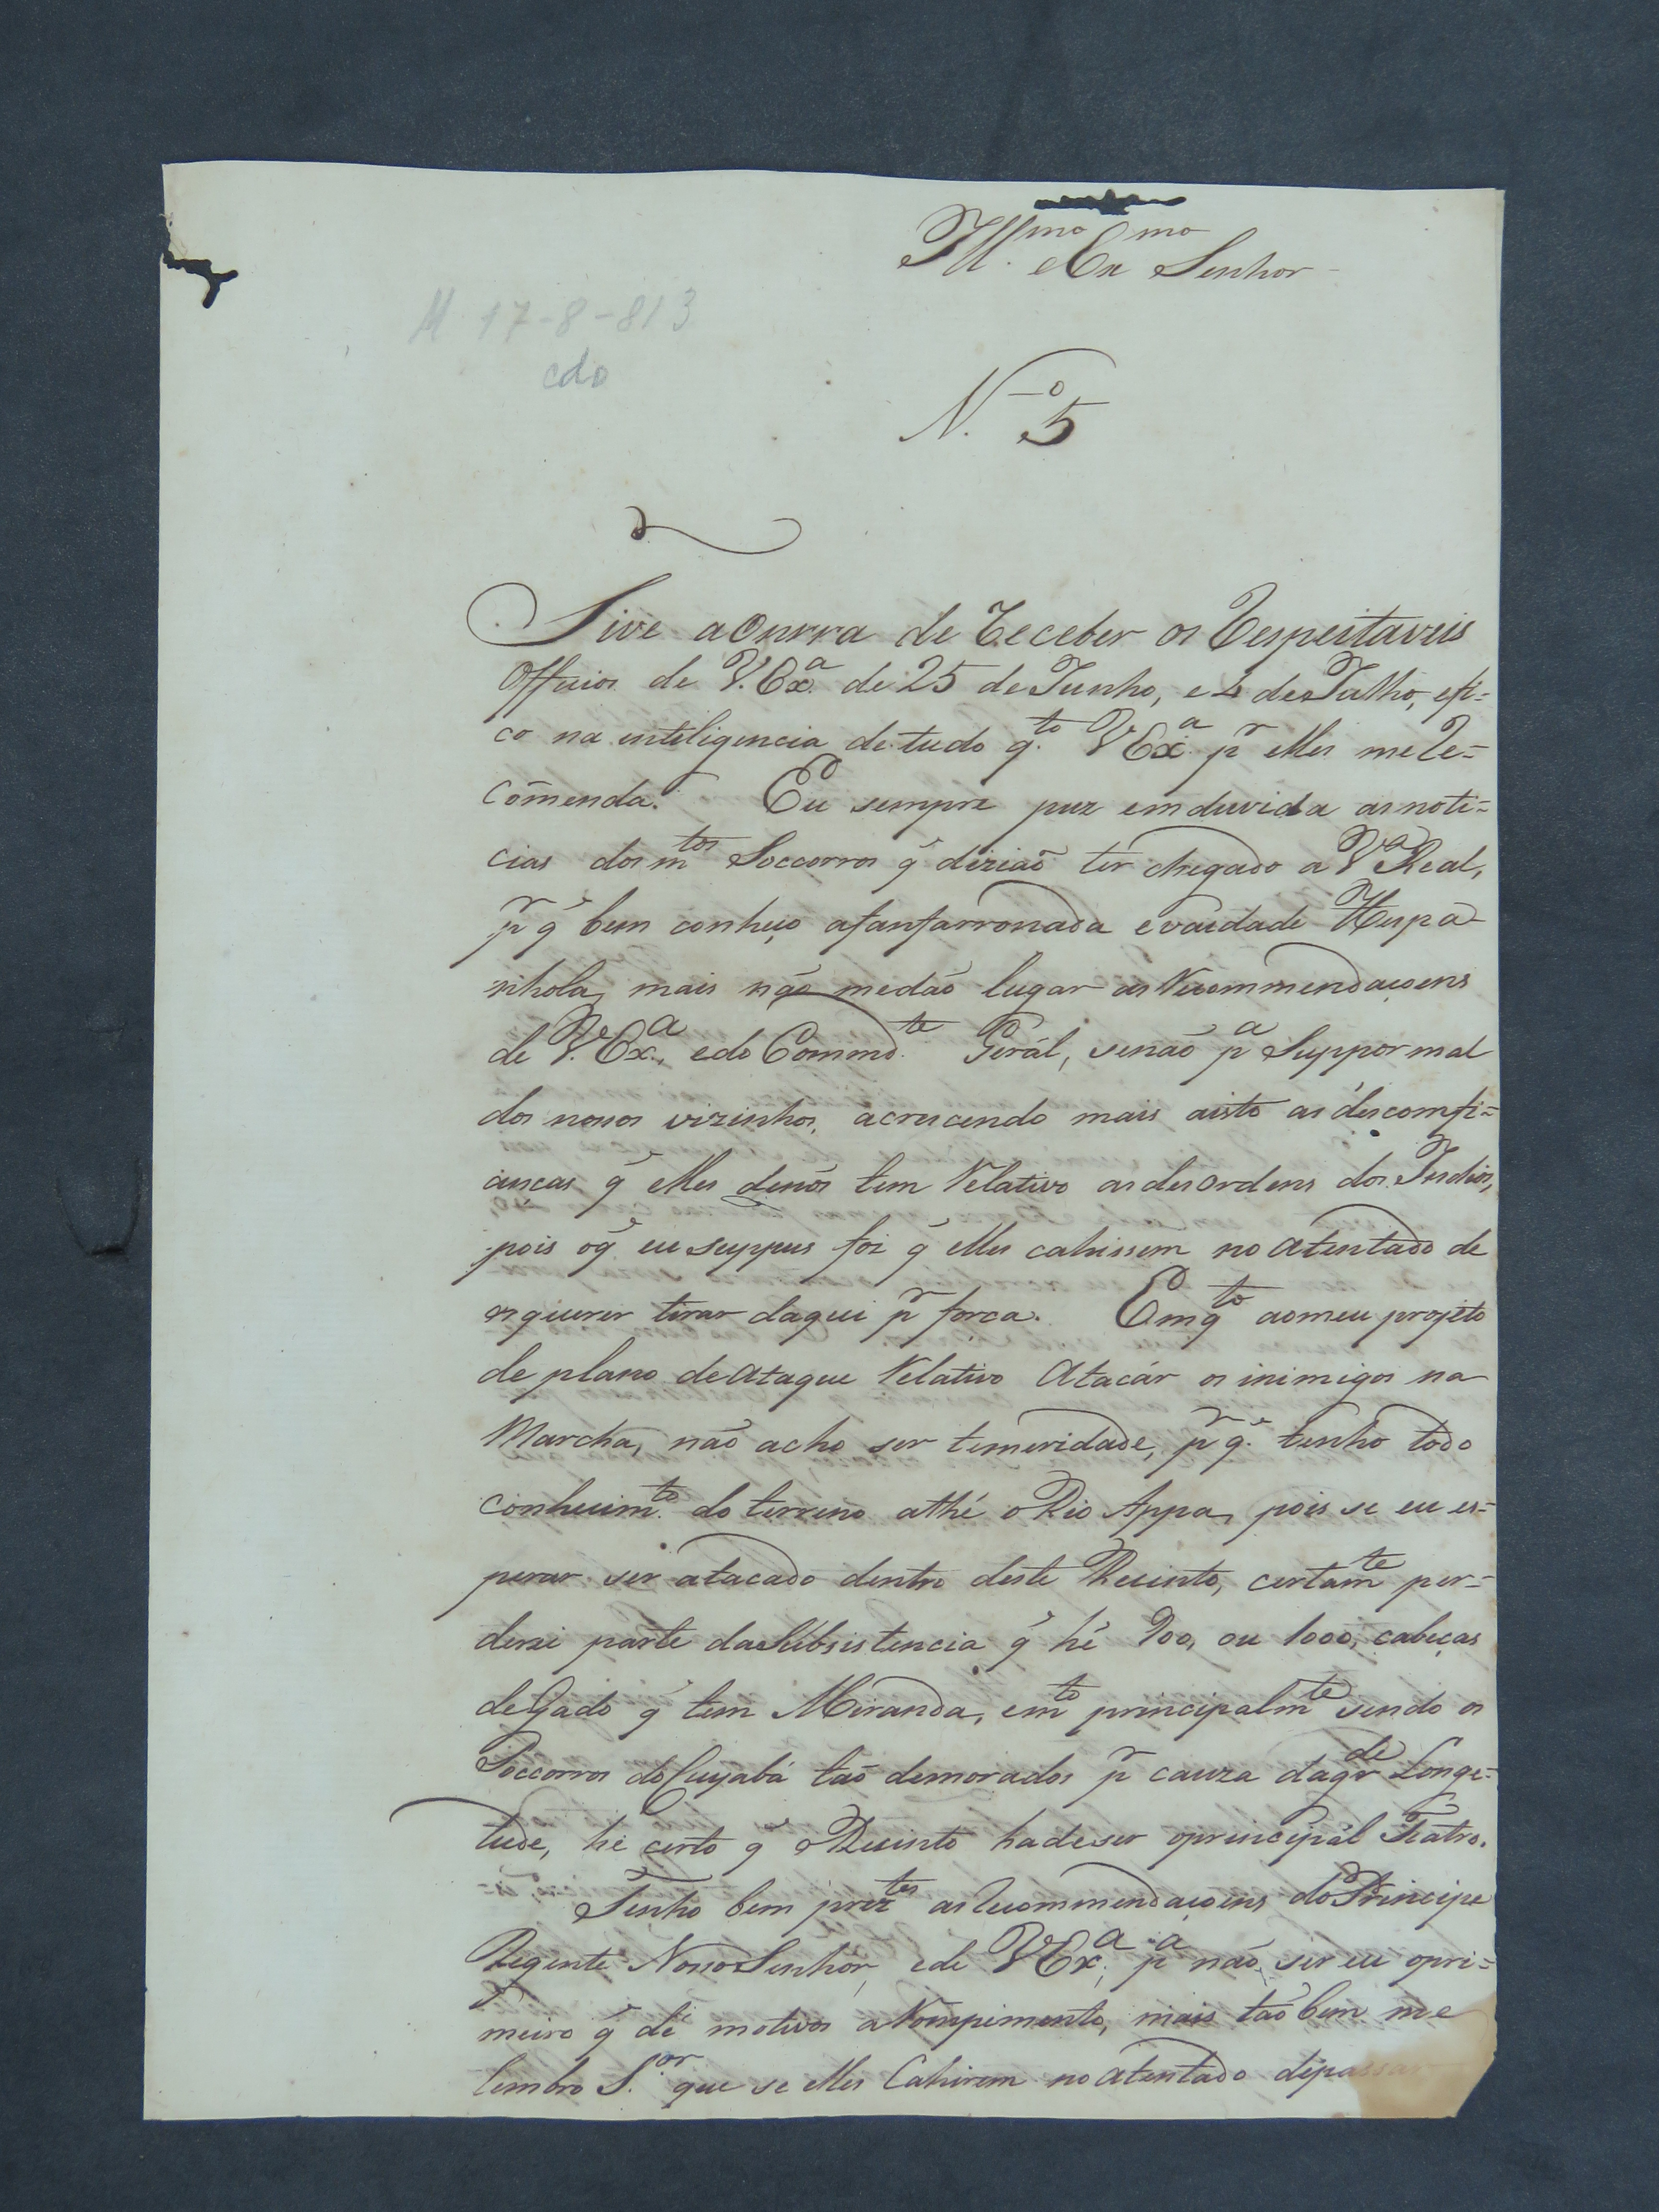 Ill.mo e Ex.mo Senhor
M 17-8-813
cdo
N.o 5
Tive a Onrra de Receber os Respeitaveis
Officios de V. Ex.a de 25 de Junho, e 4 de Julho, e fi=
co na inteligencia de tudo q.to V Ex.a pr elles me Re=
cõmenda. Eu sempre puz em duvida as noti=
cias dos mtos Soccorros q̃ diziaõ ter chegado a Va Real,
pr q̃ bem conheço a fanfarronada e vaidade Hespa
nhola, mais não me dão lugar as Recommendaçoens
de V. Ex.a, e do Commd.te Gerál, senaõ pa Suppor mal
dos nosos vizinhos, acrescendo mais aisto as descomfi=
ancas q̃ elles de nós tem Relativo as desordens dos Indios,
pois o q̃ eu suppus foi q̃ elles cahissem no atentado de
os querer tirar daqui pr forca. Emq.to ao meu projeto
de plano de ataque Relativo Atacár os inimigos na
Marcha, não acho ser temeridade, pr q̃ tenho todo
conhecim.to do terreno athé o Rio Appa, pois se eu es=
perar ser atacado dentro deste Recinto, certamte per=
derei parte da Subsistencia q̃ hé 900, ou 1000, cabeças
de Gado q̃ tem Miranda, e mto principalmte sendo os
Soccorros do Cuyabá taõ demorados pr cauza da grde Longe=
tude, hé certo q̃ o Recinto ha de ser o principál Teatro.
Tenho bem preztes as Recommendaçoens do Principe
Regente Noso Senhor, e de V Ex.a, pa naõ ser eu o pri=
meiro q̃ dê motivos a Rompimento, mais taõ bem me
lembro S.or que se elles Cahirem no atentado de passar